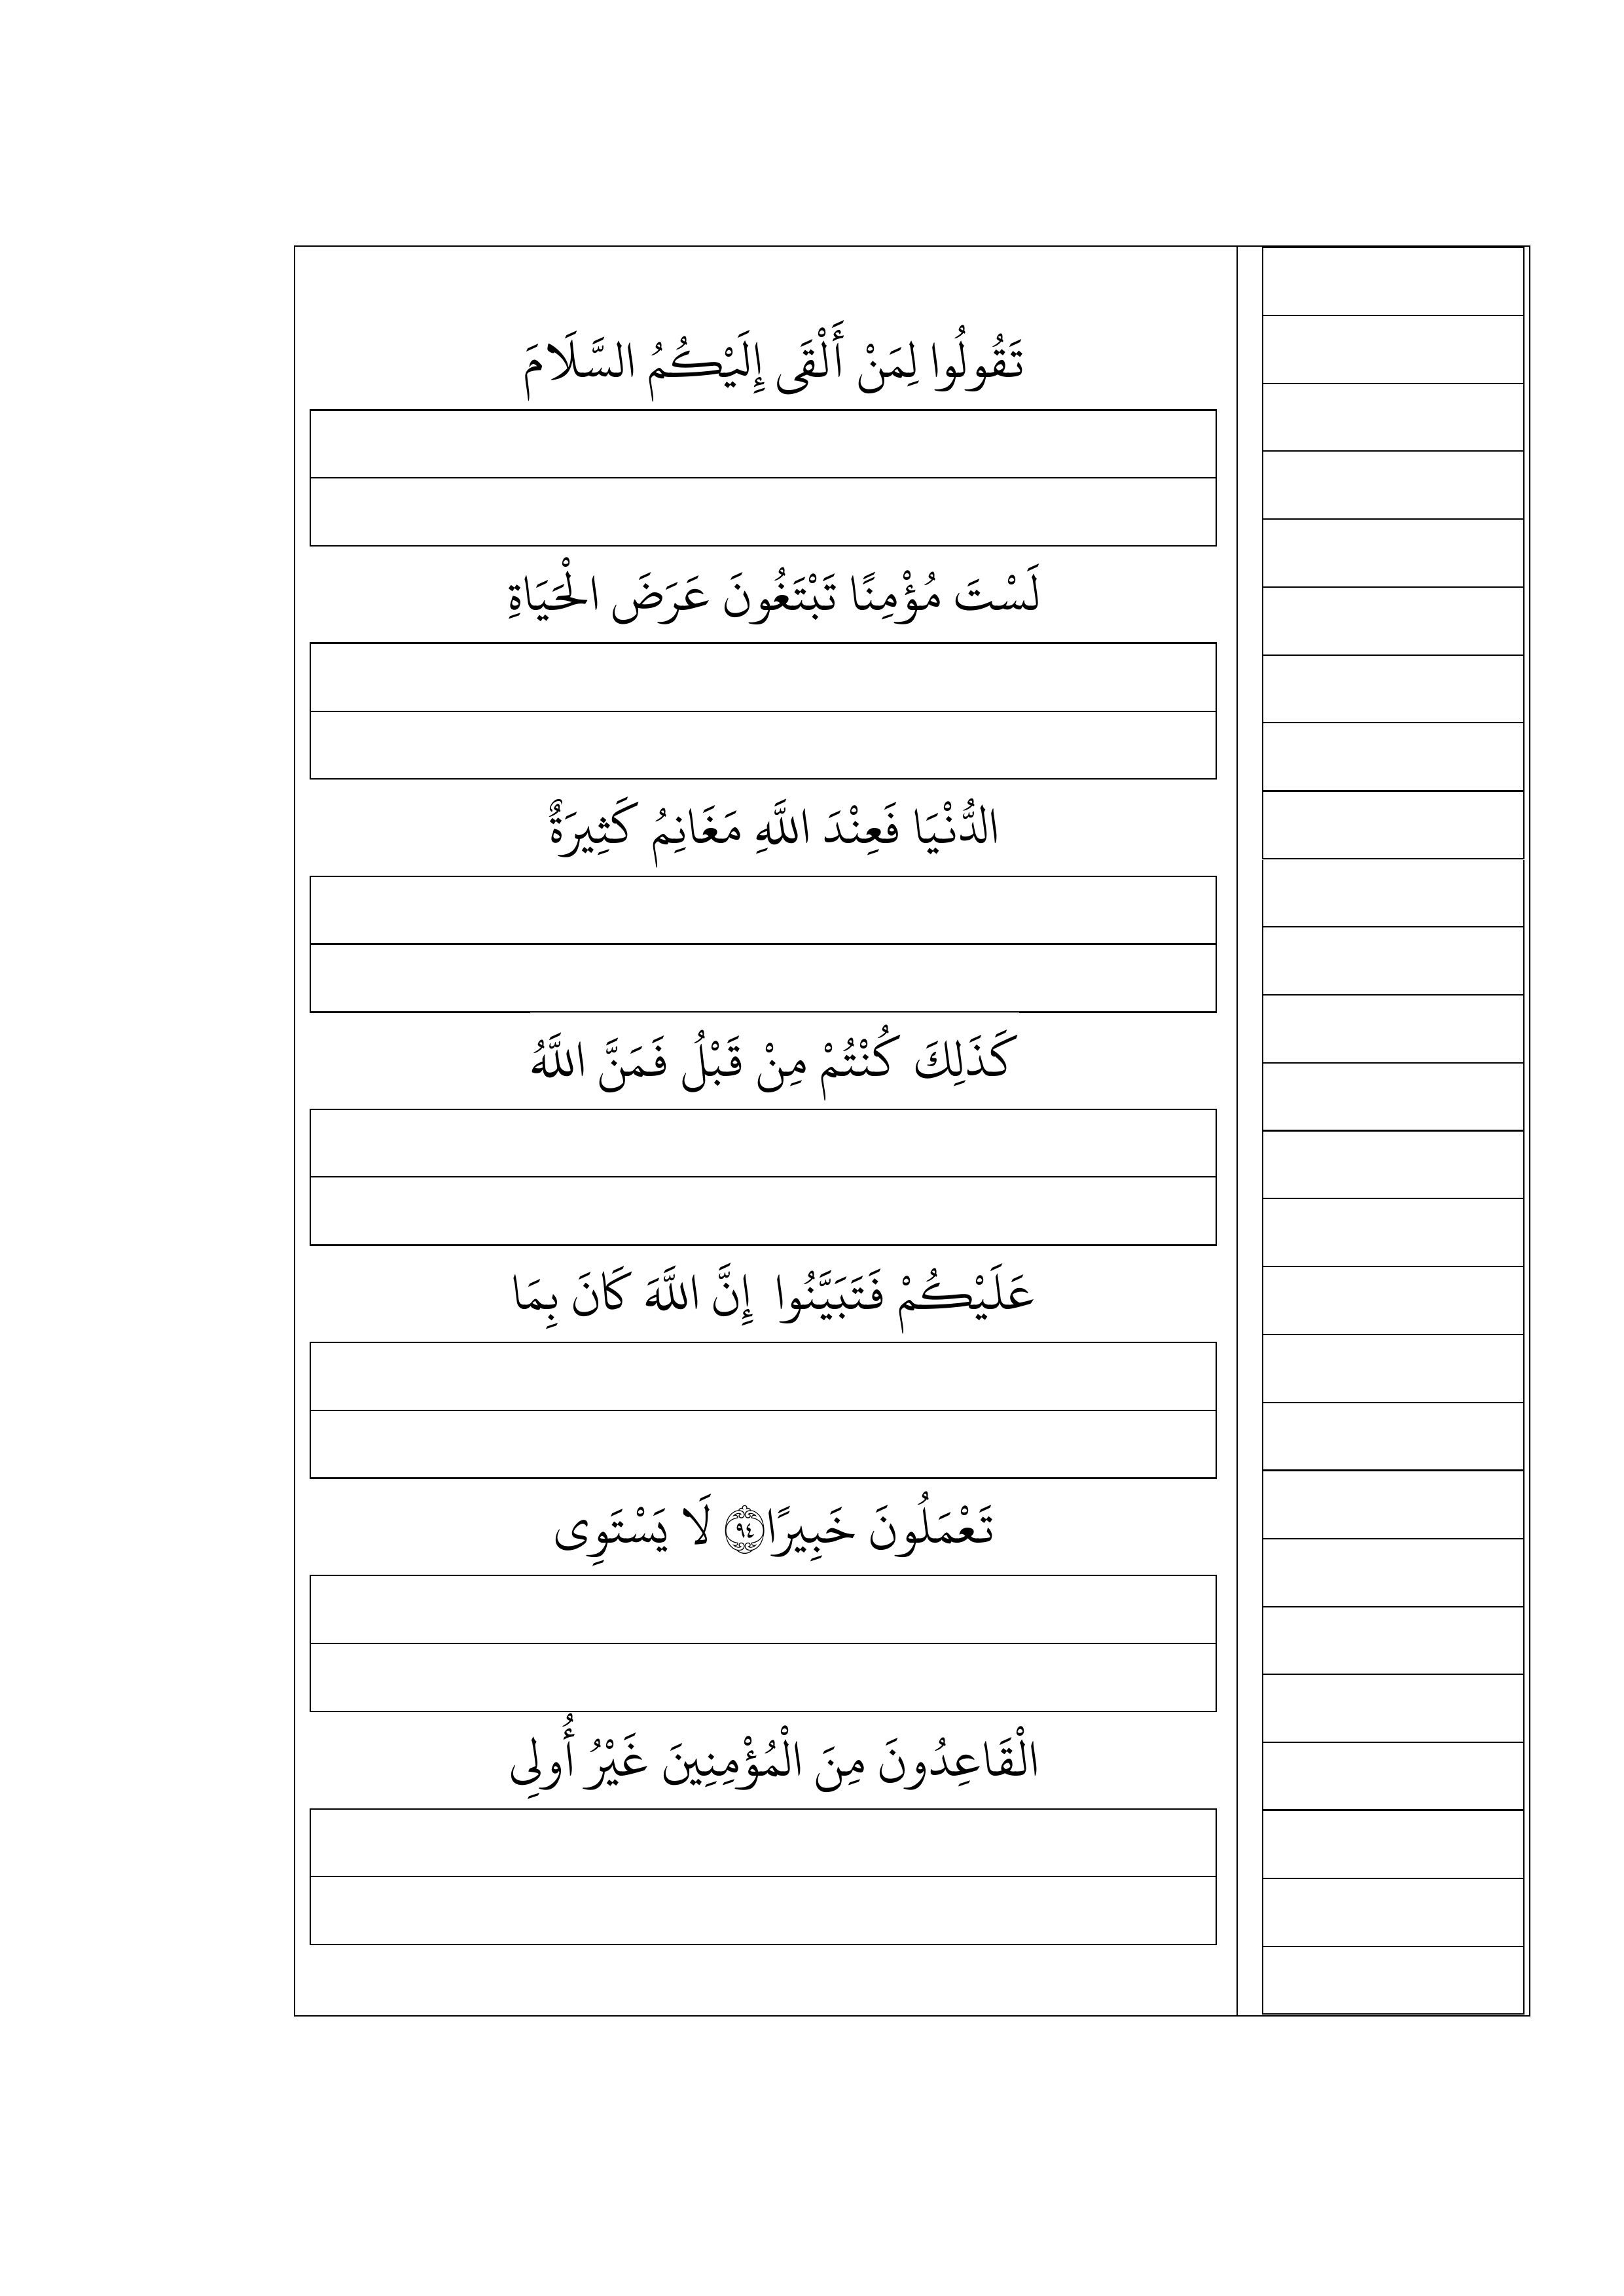 تَقُولُوا لِمَنْ أَلْقَى إِلَيْكُمُ السَّلَامَ
لَسْتَ مُؤْمِنًا تَبْتَغُونَ عَرَضَ الْحَيَاةِ
الدُّنْيَا فَعِنْدَ اللَّهِ مَغَانِمُ كَثِيرَةٌ
كَذَلِكَ كُنْتُمْ مِنْ قَبْلُ فَمَنَّ اللَّهُ
عَلَيْكُمْ فَتَبَيَّنُوا إِنَّ اللَّهَ كَانَ بِمَا
تَعْمَلُونَ خَبِيرًا ۝٩٤ لَا يَسْتَوِى
الْقَاعِدُونَ مِنَ الْمُؤْمِنِينَ غَيْرُ أُولِى